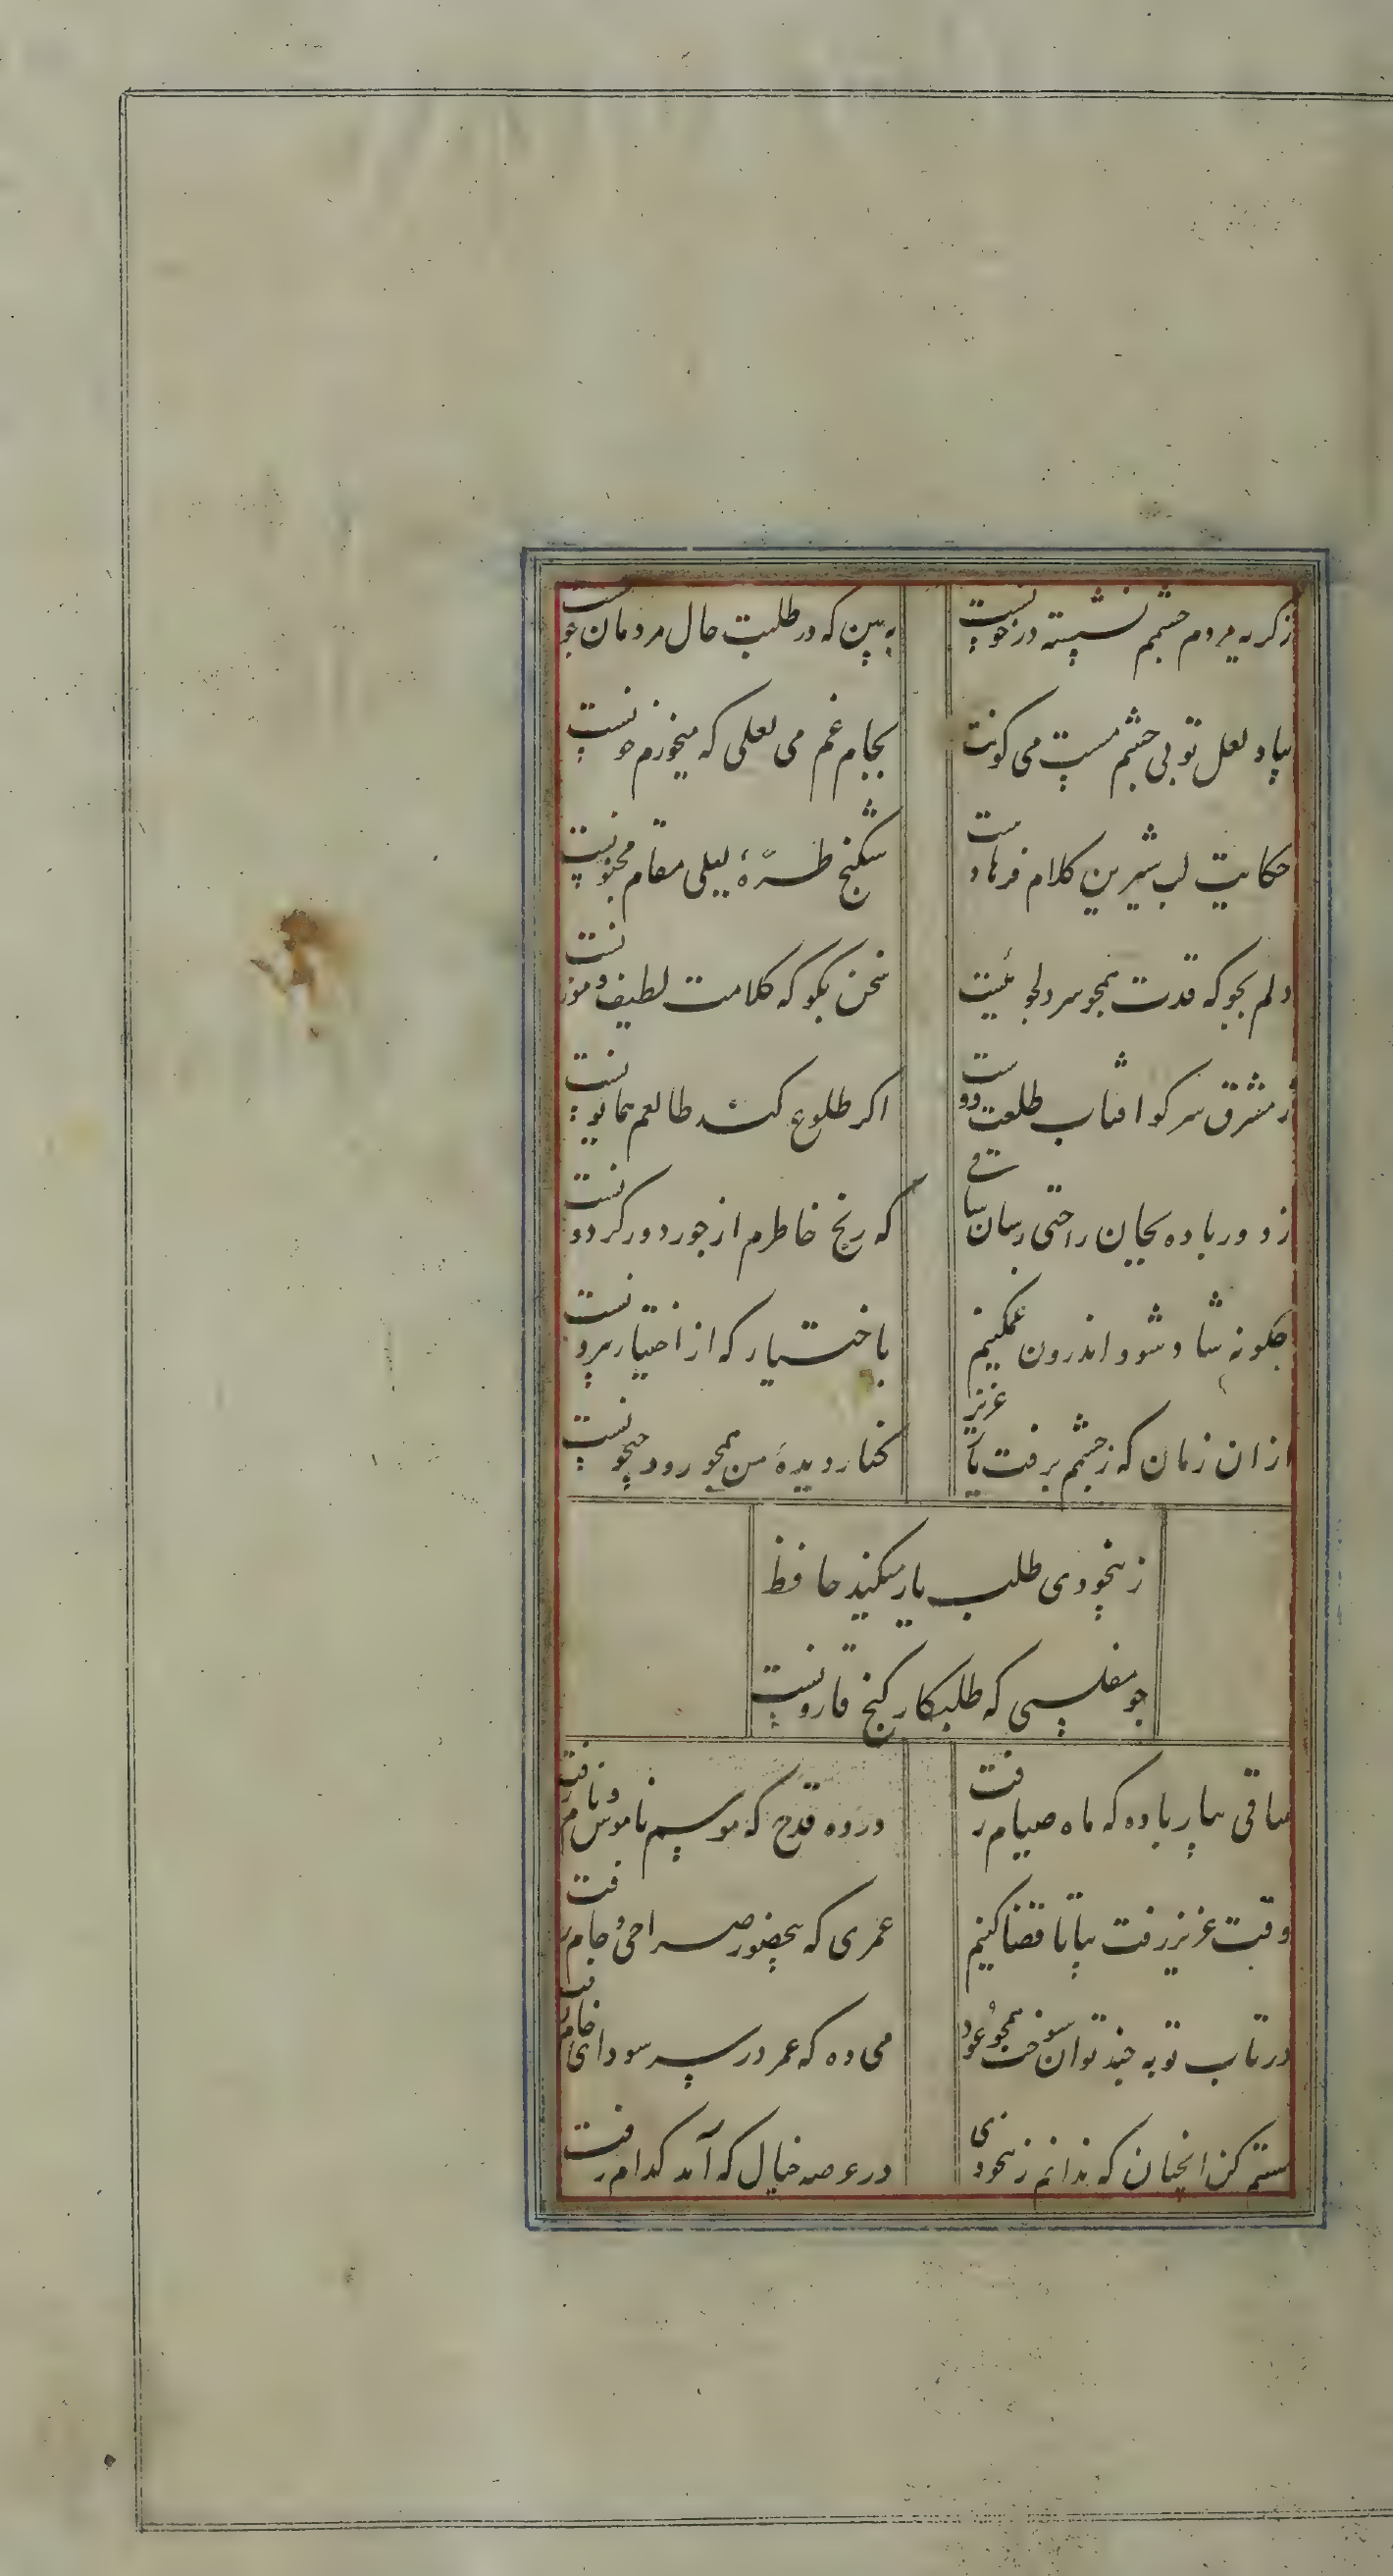 زکریه مردم چشمم نشسته در خونست
به بین که در طلبت حال مردمان چونست
بیاد لعل تو بی چشم مست می کونت
بجام غم می لعلی که میخورم خونست
حکایت لب شیرین کلام فرهادست
شکنج طرّهٔ لیلی مقام مجنونست
دلم بجو که قدت همجو سرو دلجوئیست
سخن بکو که کلامت لطیف و موزنست
ز مشرق سر کو افتاب طلعت دوست
اکر طلوع کند طالعم همایونست
ز دور باده بجان راحتی رسان ساقی
که رنج خاطرم از جور دور کردونست
چکونه شاد شود اندرون غمکینم
باختیار که از اختیار بیرونست
از ان زمان که ز چشمم برفت یار عزیز
کنار دیدهٔ من همجو رود جیحونست
ز بیخودی طلب یار میکند حافظ
جو مفلسی که طلبکار کنج قارونست
ساقی بیار باده که ماه صیام رفت
در ده قدح که موسم ناموس و نام رفت
وقت عزیز رفت بیا تا قضا کنیم
عمری که بیحضور صراحی و جام رفت
در تاب توبه جند توان سوخت همجو عود
می ده که عمر در سر سودای خام رفت
مستم کن انجنان که ندانم ز بیخودی
در عرصه خیال که آمد کدام رفت